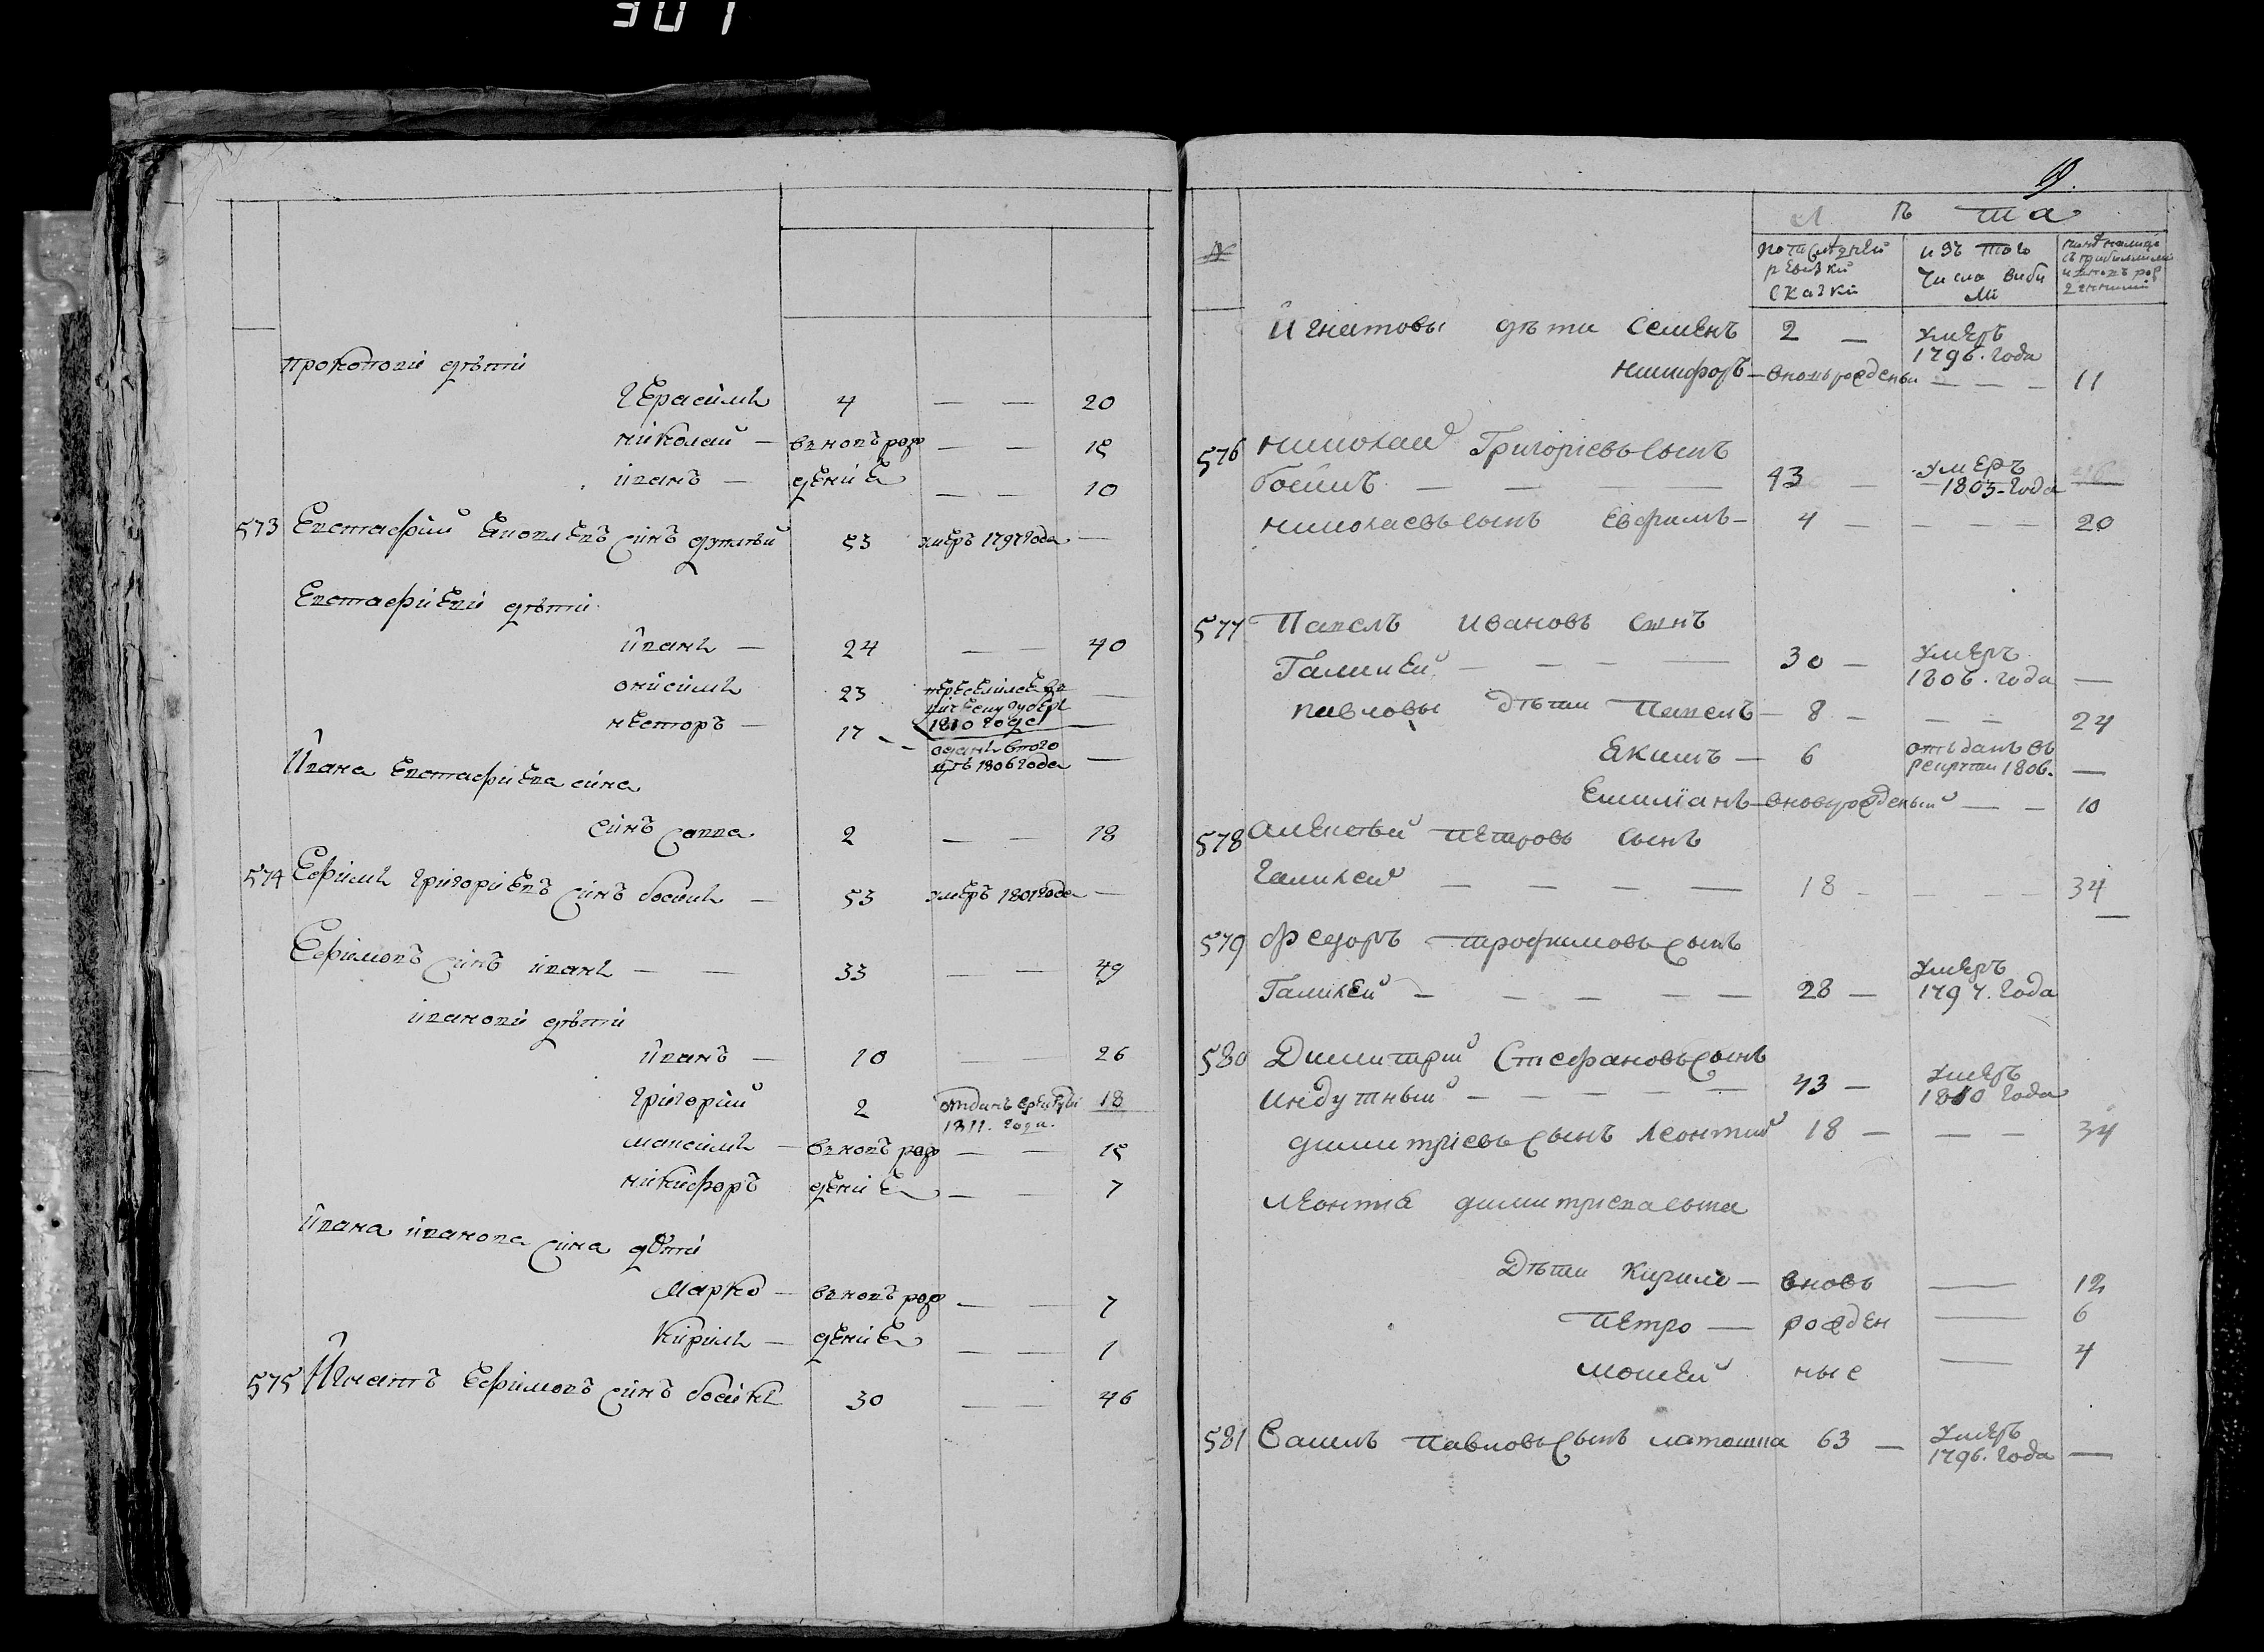 301
прокопови дѣти
Герасимъ 4 — — 20
николай — въновъ рож — — 15
иванъ — дение — — 10
573 Евстафий Яковлевъ синъ 53 умеръ 1797 года —
Евстафиеви дѣти
иванъ — 24 — — 40
онисимъ 23 —
1810 годе
несторъ — 17 — — —
1806 года
Ивана Евстафиева сина
синъ Савва 2 — — 18
574 Ефимъ григориевъ синъ босий — 53 умеръ 1801 года —
Ефимовъ синъ иванъ — — 33 — — 49
иванови дѣти
иванъ — 10 — — 26
григорий 2 отданъ 18
1811. года.
максимъ — въновъ рож — — 15
никифоръ дение — — 7
ивана иванова сина дѣти
Марко — въновъ рож — — 7
Кирилъ — дение — — 1
575 Игнатъ Ефимовъ синъ 30 — — 46
9.
Л ѣ та
№
по последней
ревизки
сказки
изъ того
числа виби
ли
Игнатовы дѣти Семенъ 2 — умеръ
1796. года
никифоръ — вновърожденый — — — 11
576 николай Григорiевъ сынъ
— — — — 43 — умеръ
1803. года
николаевъ сынъ Ефимъ — 4 — — — — 20
577 Павелъ Ивановъ сынъ
Галилей — — — — 30 — умеръ
1806. года —
павловы дѣти Павелъ — 8 — — — 24
Якимъ — 6 отъданъ въ
рекруты 1806. —
Емилiанъ — вновърожденый — — 10
578 Алексѣй Петровъ сынъ
Галилей — — — — 18 — — — — 34
579 Федоръ трофимовъ сынъ
Галилей — — — — — 28 — умеръ
1797. года
580 Димитрий Стефановъ сынъ
индутный — — — — — 43 — умеръ
1810 года
димитрiевъ сынъ Леонтий 18 — — — 34
Леонтiя димитриева сына
Дѣти Кирило — вновь — 12
Петро — рожден — 6
Мокей ные — 4
581 Василъ Павловъ сынъ 63 — умеръ
1796. года —